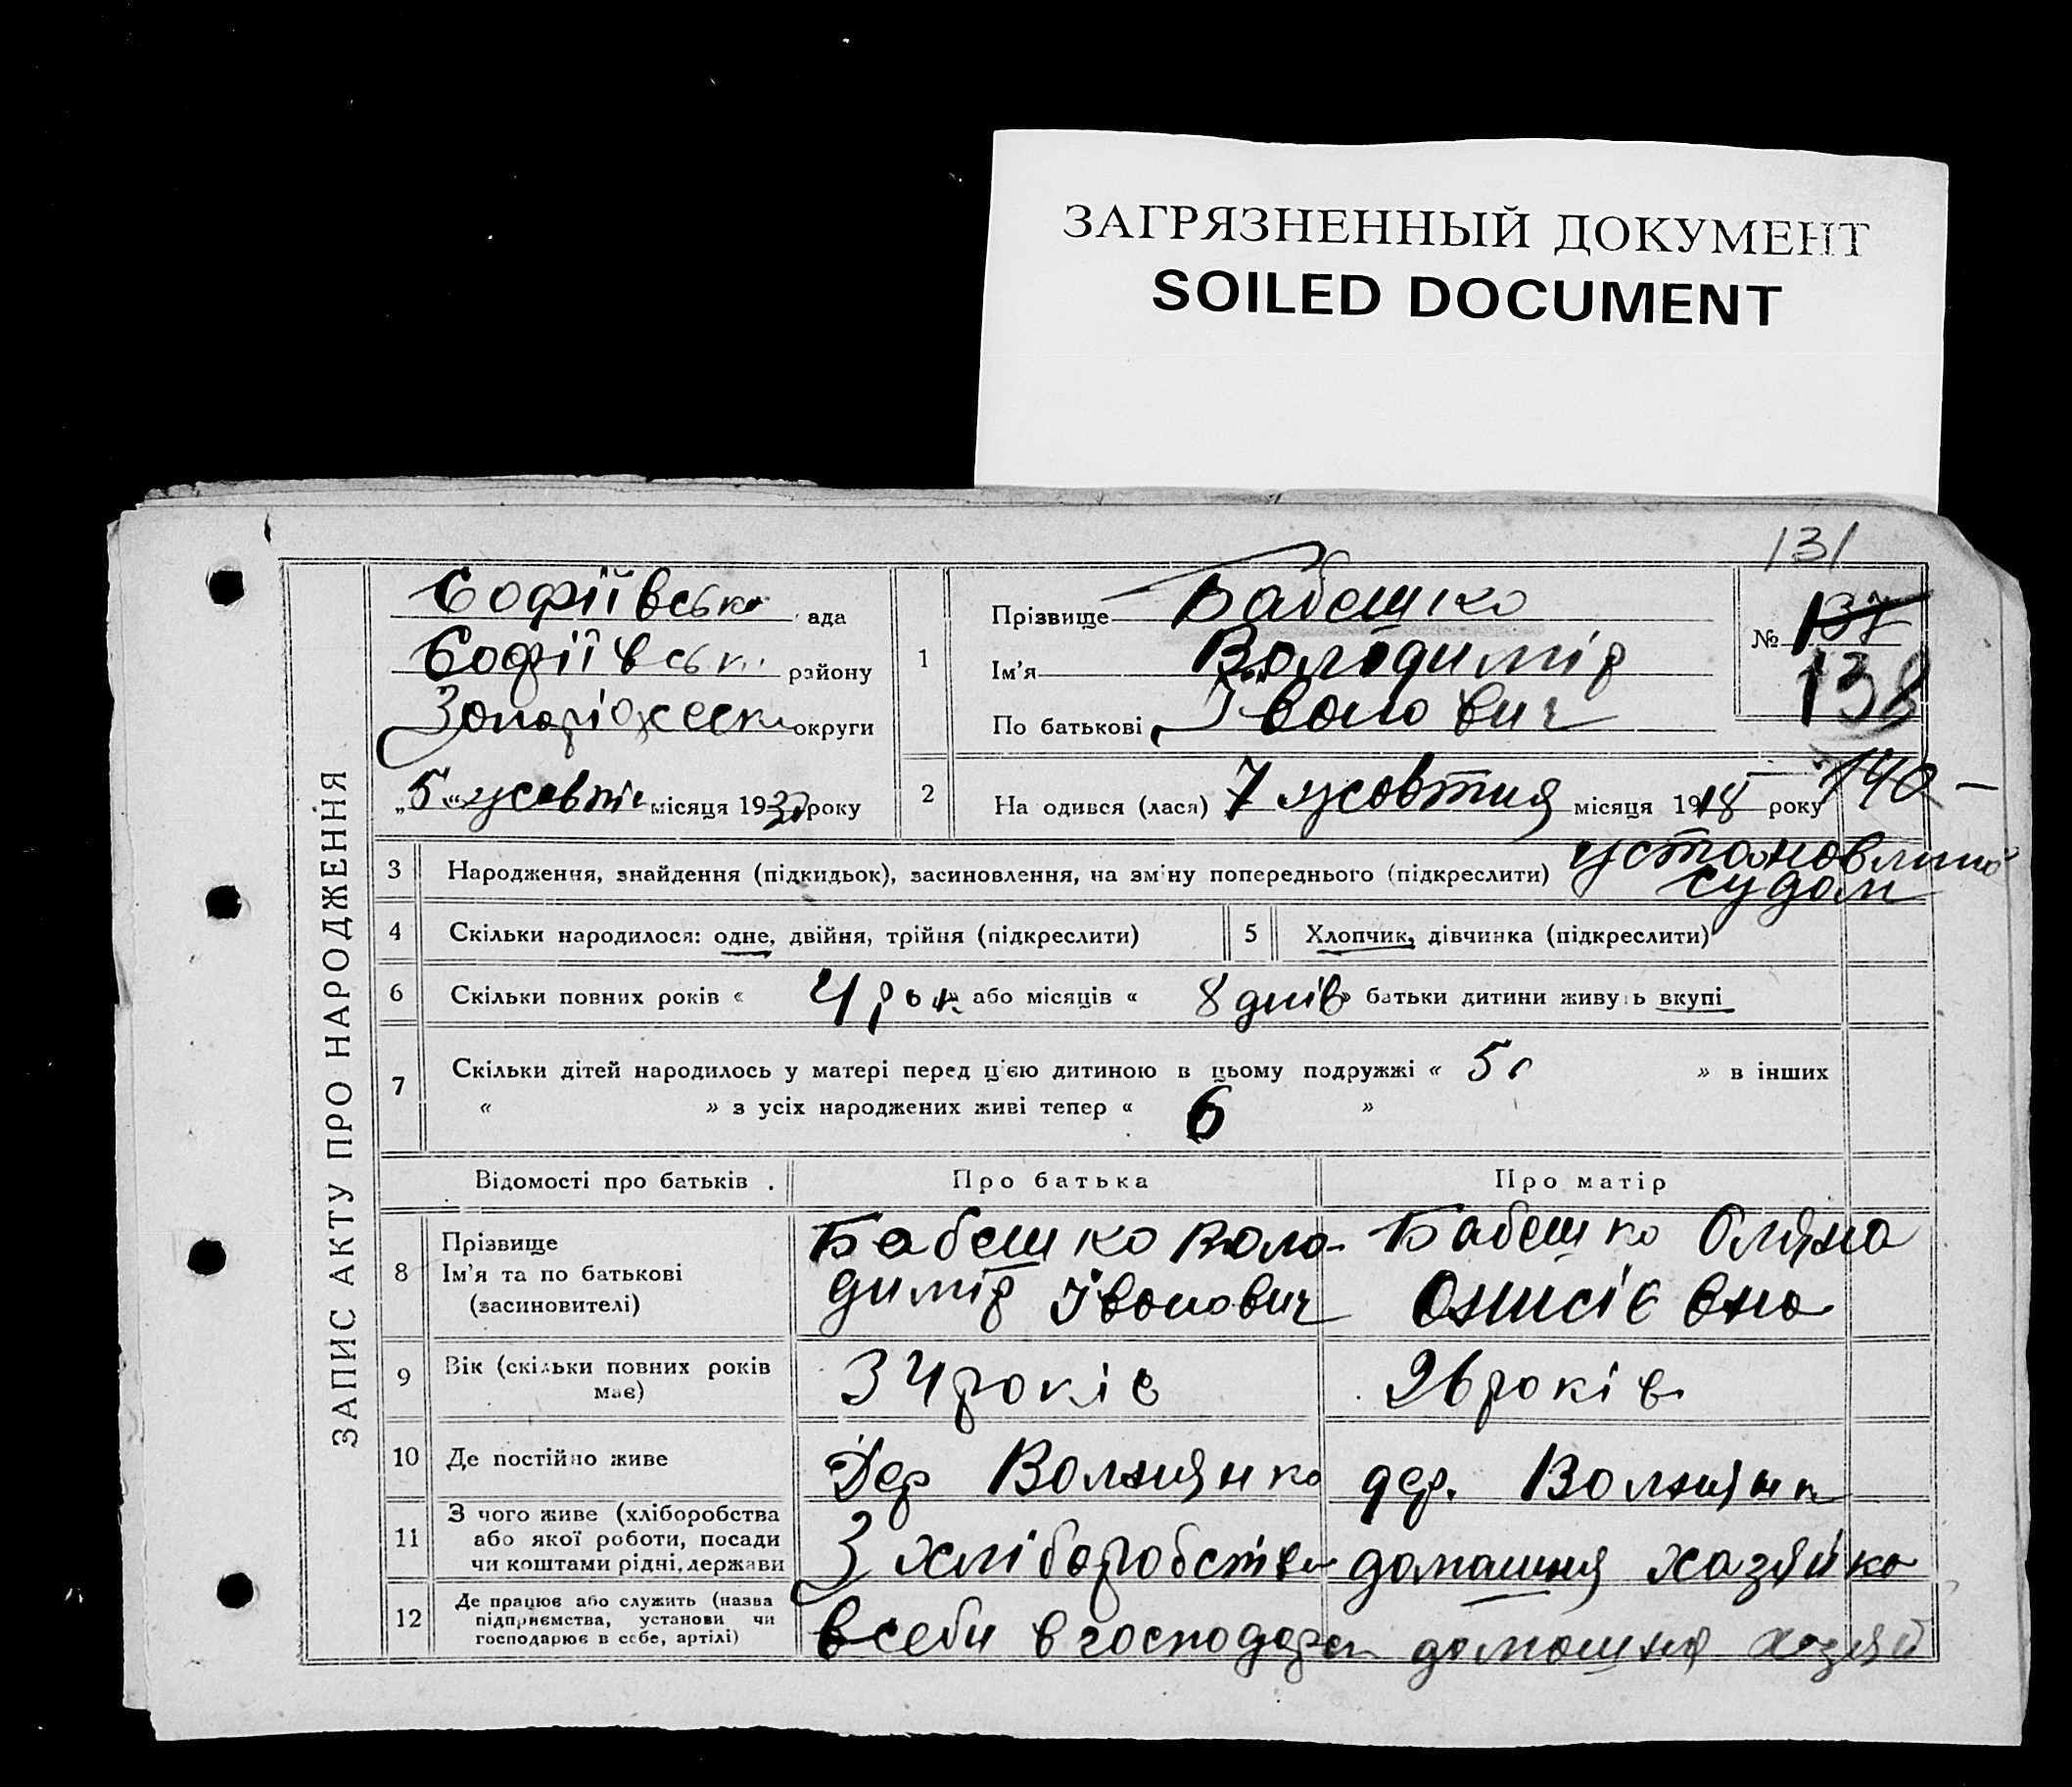 ЗАГРЯЗНЕННЫЙ ДОКУМЕНТ
SOILED DOCUMENT
131
ЗАПИС АКТУ ПРО НАРОДЖЕННЯ
Софіївська ада
Софіївськ району
округи
„5“ жовтн місяця 193 року
1
Прізвище Бабешко
Ім'я Володимір
По батькові Іванович
№ 137
138
140
2 На одився (лася) 7 жовтня місяця 1918 року
3 Народження, знайдення (підкидьок), засиновлення, на зміну попереднього (підкреслити) судом
4 Скільки народилося: одне, двійня, трійня (підкреслити)
5 Хлопчик, дівчинка (підкреслити)
6 Скільки повних років « 4 рок » або місяців « 8 днів » батьки дитини живуть вкупі
7 Скільки дітей народилось у матері перед цією дитиною в цьому подружжі « 5 » в інших
« » з усіх народжених живі тепер « 6 »
Відомості про батьків
Про батька
Про матір
8 Прізвище
Ім'я та по батькові
(засиновителі)
Бабешко Воло-
димір Іванович
Бабешко Оляна
Онисієвна
9 Вік (скільки повних років
має)
34 років
26 років
10 Де постійно живе
Дер Волнянка
дер. Волнянк
11 З чого живе (хліборобства
або якої роботи, посади
чи коштами рідні, держави
З хліборобства
домашня хазяйка
12 Де працює або служить (назва
підприємства, установи чи
господарює в себе, артілі)
в себи в господар
домашня хазяй